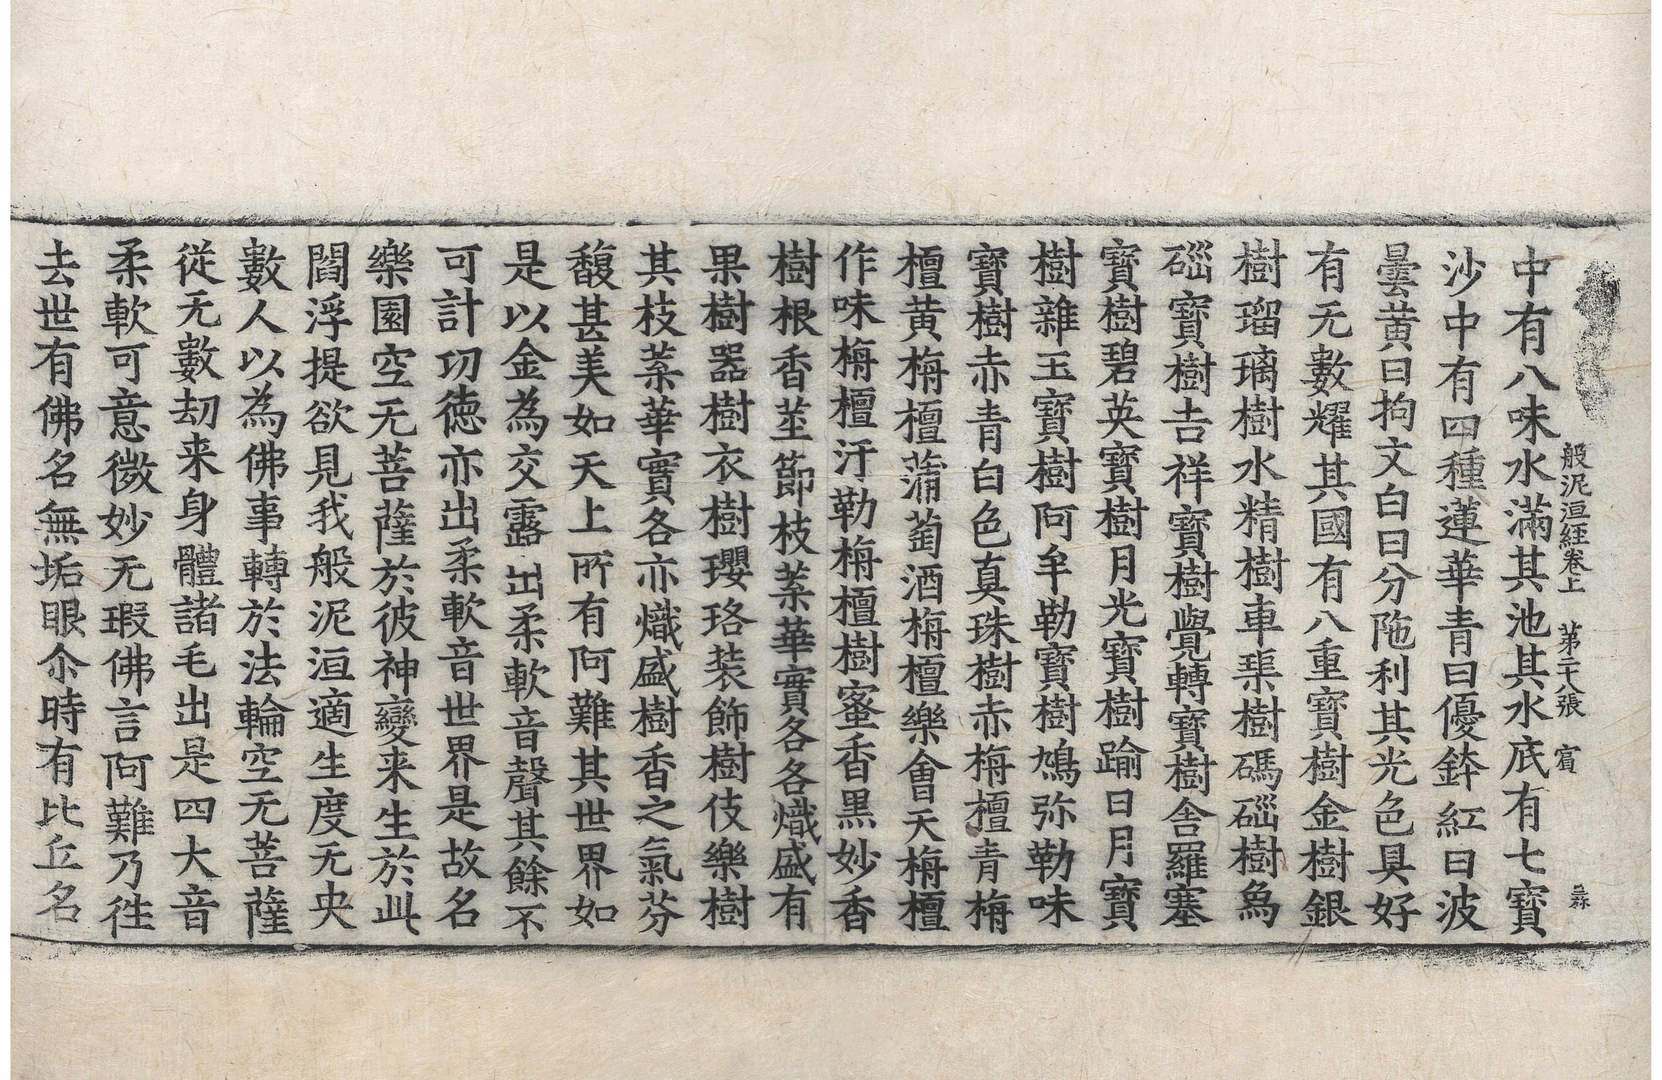 般泥洹経卷上　第二十八張　賓
中有八味水滿其池其水底有七寶
沙中有四種蓮華青曰優鉢紅曰波
曇黄曰拘文白曰分陁利其光色具好
有无數耀其國有八重寶樹金樹銀
樹瑠璃樹水精樹車𤦲樹碼碯樹為
碯寶樹吉祥寶樹覺轉寶樹舎羅塞
寶樹碧英寶樹月光寶樹踰日月寶
樹雜玉寶樹阿牟勒寶樹鳩弥勒味
寶樹赤青白色真珠樹赤栴檀青栴
檀黄栴檀蒲萄酒栴檀樂會天栴檀
作味栴檀汙勒栴檀樹蜜香黒妙香
樹根香莖節枝葉華實各各熾盛有
果樹器樹衣樹瓔珞装飾樹伎樂樹
其枝葉華實各亦熾盛樹香之氣芬
馥甚美如天上所有阿難其世界如
是以金為交露出柔軟音聲其餘不
可計㓛徳亦出柔軟音世界是故名
樂園空无菩薩於彼神變来生於此
閻浮提欲見我般泥洹適生度无央
數人以為佛事轉於法輪空无菩薩
從无數劫来身體諸毛出是四大音
柔軟可意微妙无瑕佛言阿難乃徃
去世有佛名無垢眼尒時有比丘名